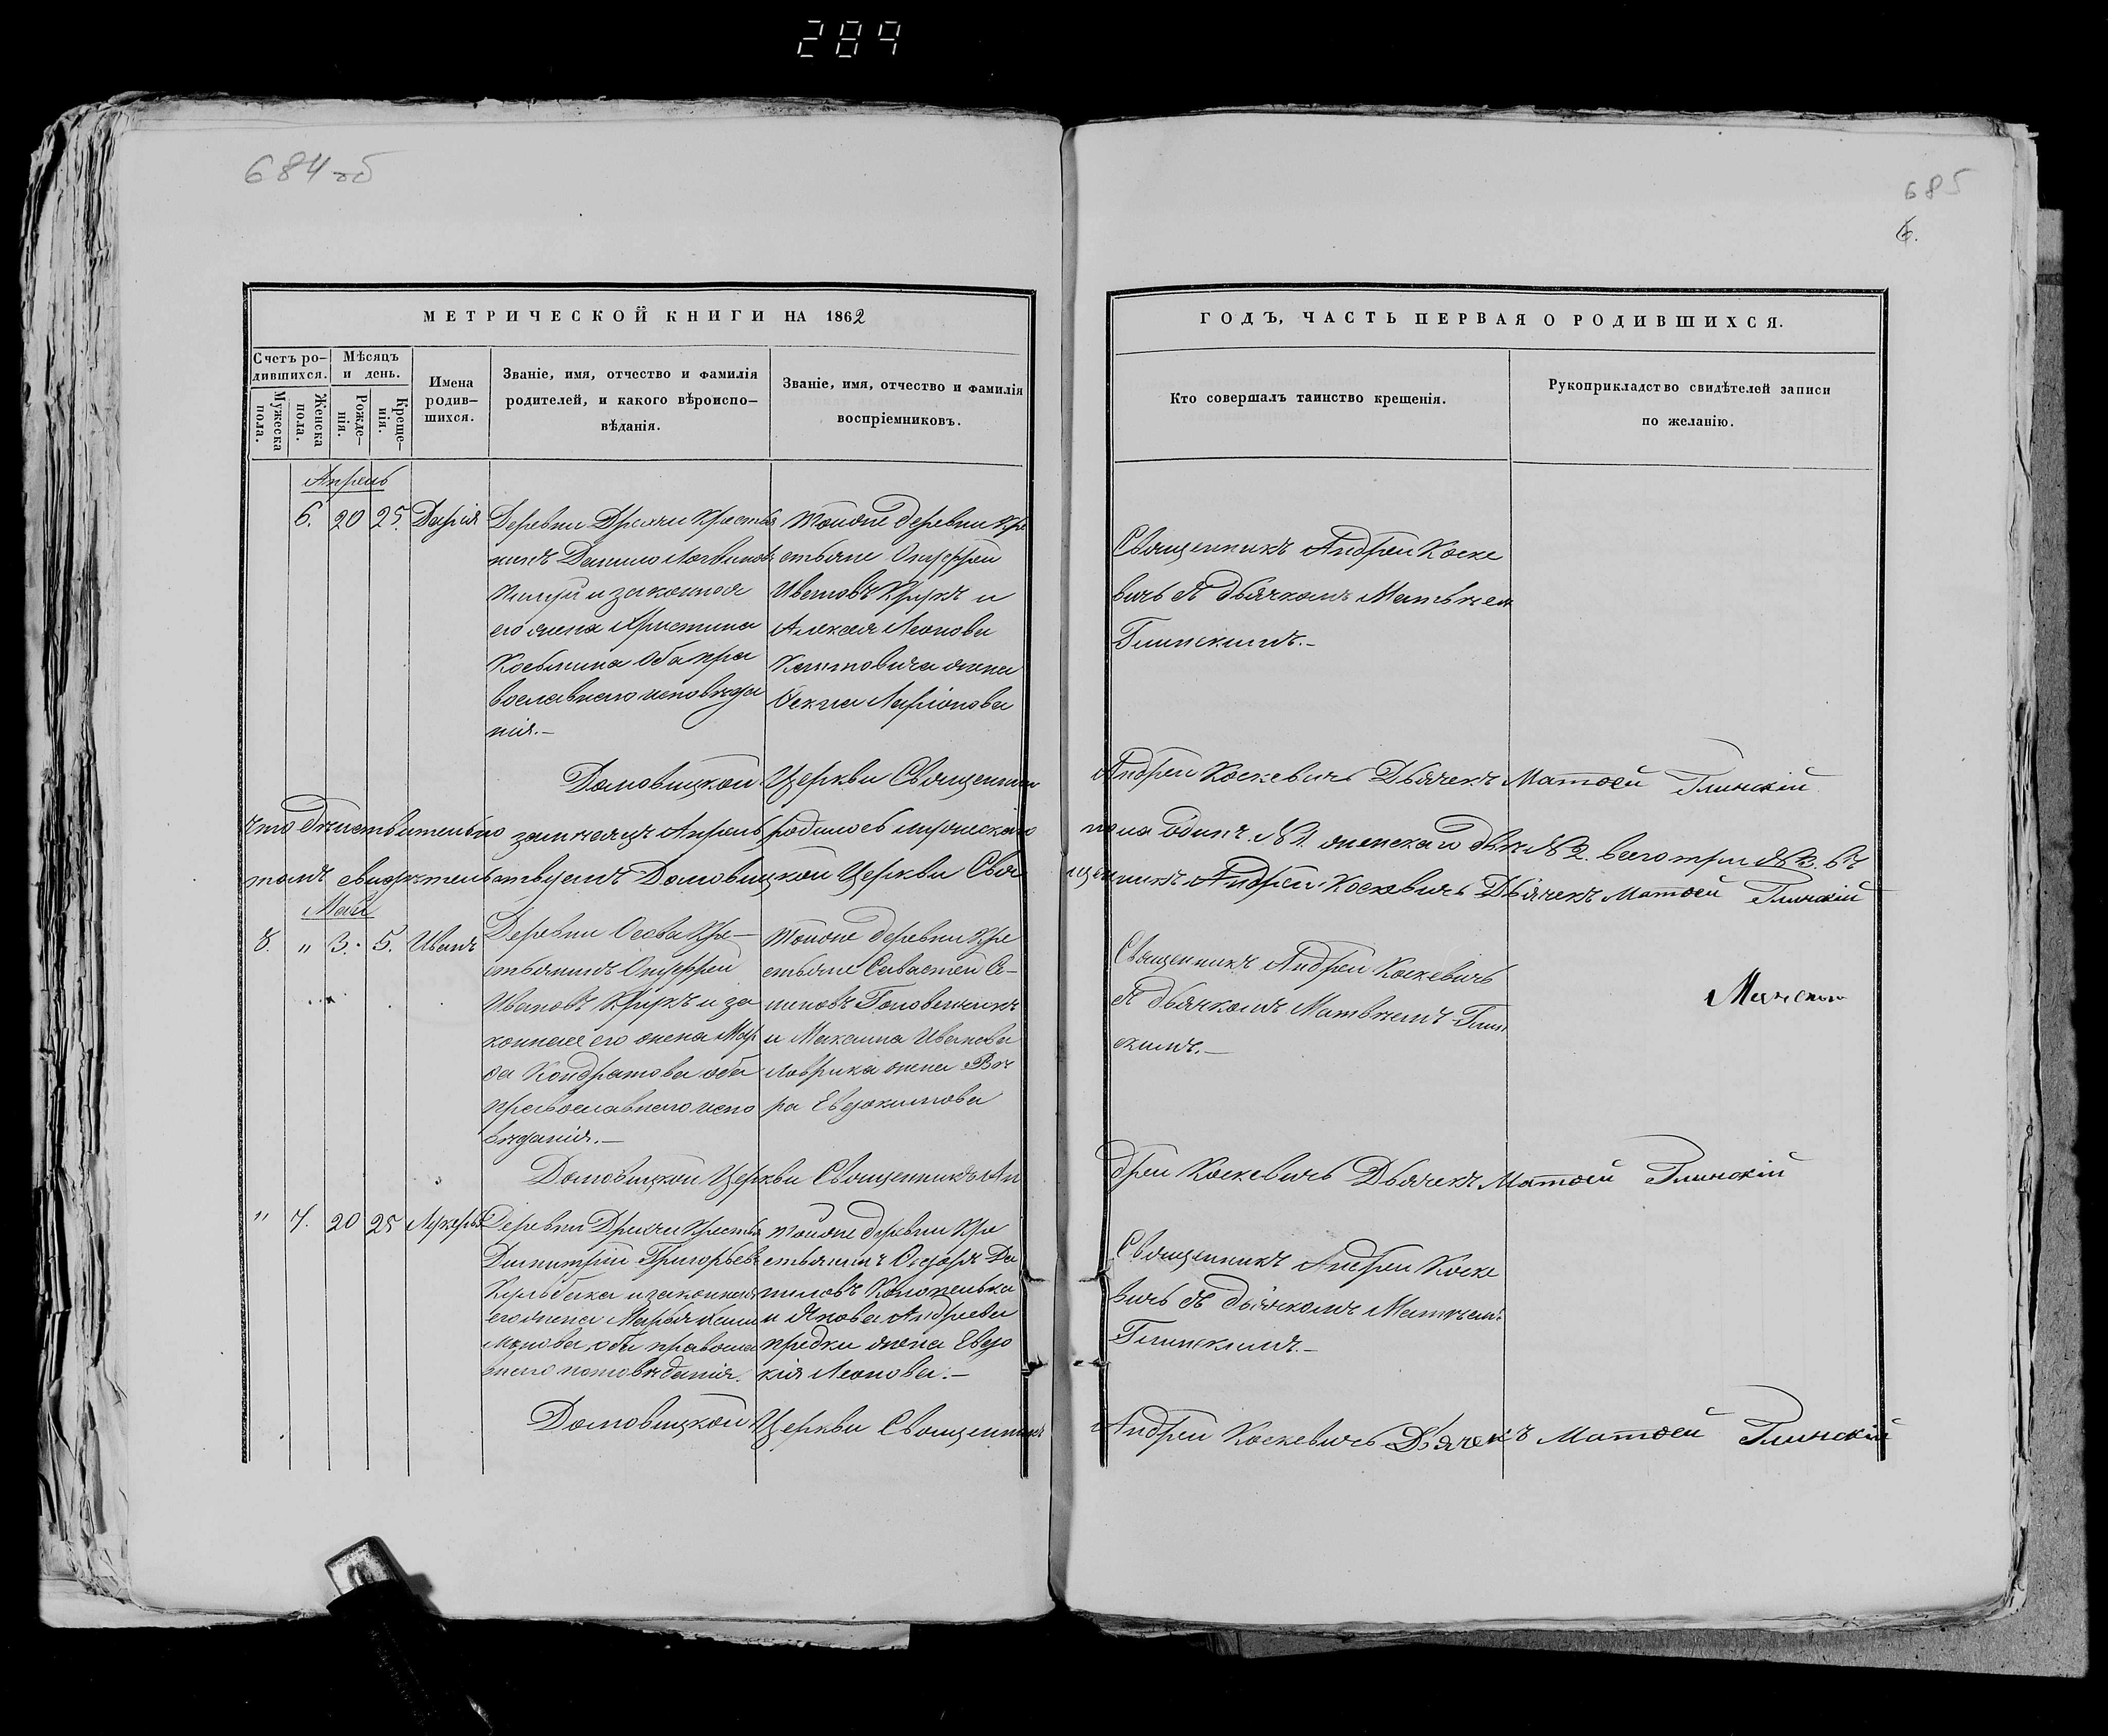 289
684 об
685
6.
МЕТРИЧЕСКОЙ КНИГИ НА 1862
ГОДЪ, ЧАСТЬ ПЕРВАЯ О РОДИВШИХСЯ.
Счетъ ро-
дившихся.
Мѣсяцъ
и день.
Мужеска
пола.
Женска
пола.
Рожде-
нія.
Креще-
нія.
Имена
родив-
шихся.
Званіе, имя, отчество и фамилія
родителей, и какого вѣроиспо-
вѣданія.
Званіе, имя, отчество и фамилія
воспріемниковъ.
Кто совершалъ таинство крещенія.
Рукоприкладство свидѣтелей записи
по желанію.
Апрель
6. 20 25. Дарія
Деревни Кресть
нинъ Данило
и законная
его жена Христина
Косьмина Оба пра
вославнаго исповѣда
нія.-
Тойже деревни Кре
стьяне Онуфрей
Ивановъ Крукъ и
Алексея Леонова
жена
Фекла Ларіонова
Священникъ Андрей Коске
вичь съ дьячкомъ Матвѣем
Глинскимъ.-
Домовицкой Церкви Священникъ
Андрей Коскевичь Дьячекъ Матѳей Глинскій
что дѣйствительно за мѣсяцъ Апрель родилось мужескаго
пола одинъ №1. женскаго двѣ №2. всего три №3. въ
томъ свидѣтельствуемъ Домовицкой Церкви Свя
щенникъ Андрей Коскевичь Дьячекъ Матѳей Глинскій
Май
8. " 3. 5. Иванъ
Деревни Осова Кре-
стьянинъ Онуфрей
Ивановъ Крукъ и за
конная его жена Мар
ѳа Кондратова оба
православнаго испо
вѣданія.-
Тойже деревни Кре
стьяне Савастей Се-
меновъ
и Максима Иванова
Лаврика жена Вѣ
ра Евдокимова
Священникъ Андрей Коскевичь
съ дьячкомъ Матвѣемъ Глин
скимъ.-
Домовицкой Церкви Священникъ Ан
дрей Коскевичь Дьячекъ Матѳей Глинскій
" 7. 20 25
Деревни Кресть
Димитрій Григорьевъ
и законная
его жена Марья
оба правосла
внаго исповѣданія.
Тойже деревни Кре
стьянинъ Ѳедоръ Да
ниловъ
и Якова Андреева
жена Евдо
кія Леонова.-
Священникъ Андрей Коске
вичь съ дьячкомъ Матвѣемъ
Глинскимъ.-
Домовицкой Церкви Священникъ
Андрей Коскевичь Дьячекъ Матѳей Глинскій